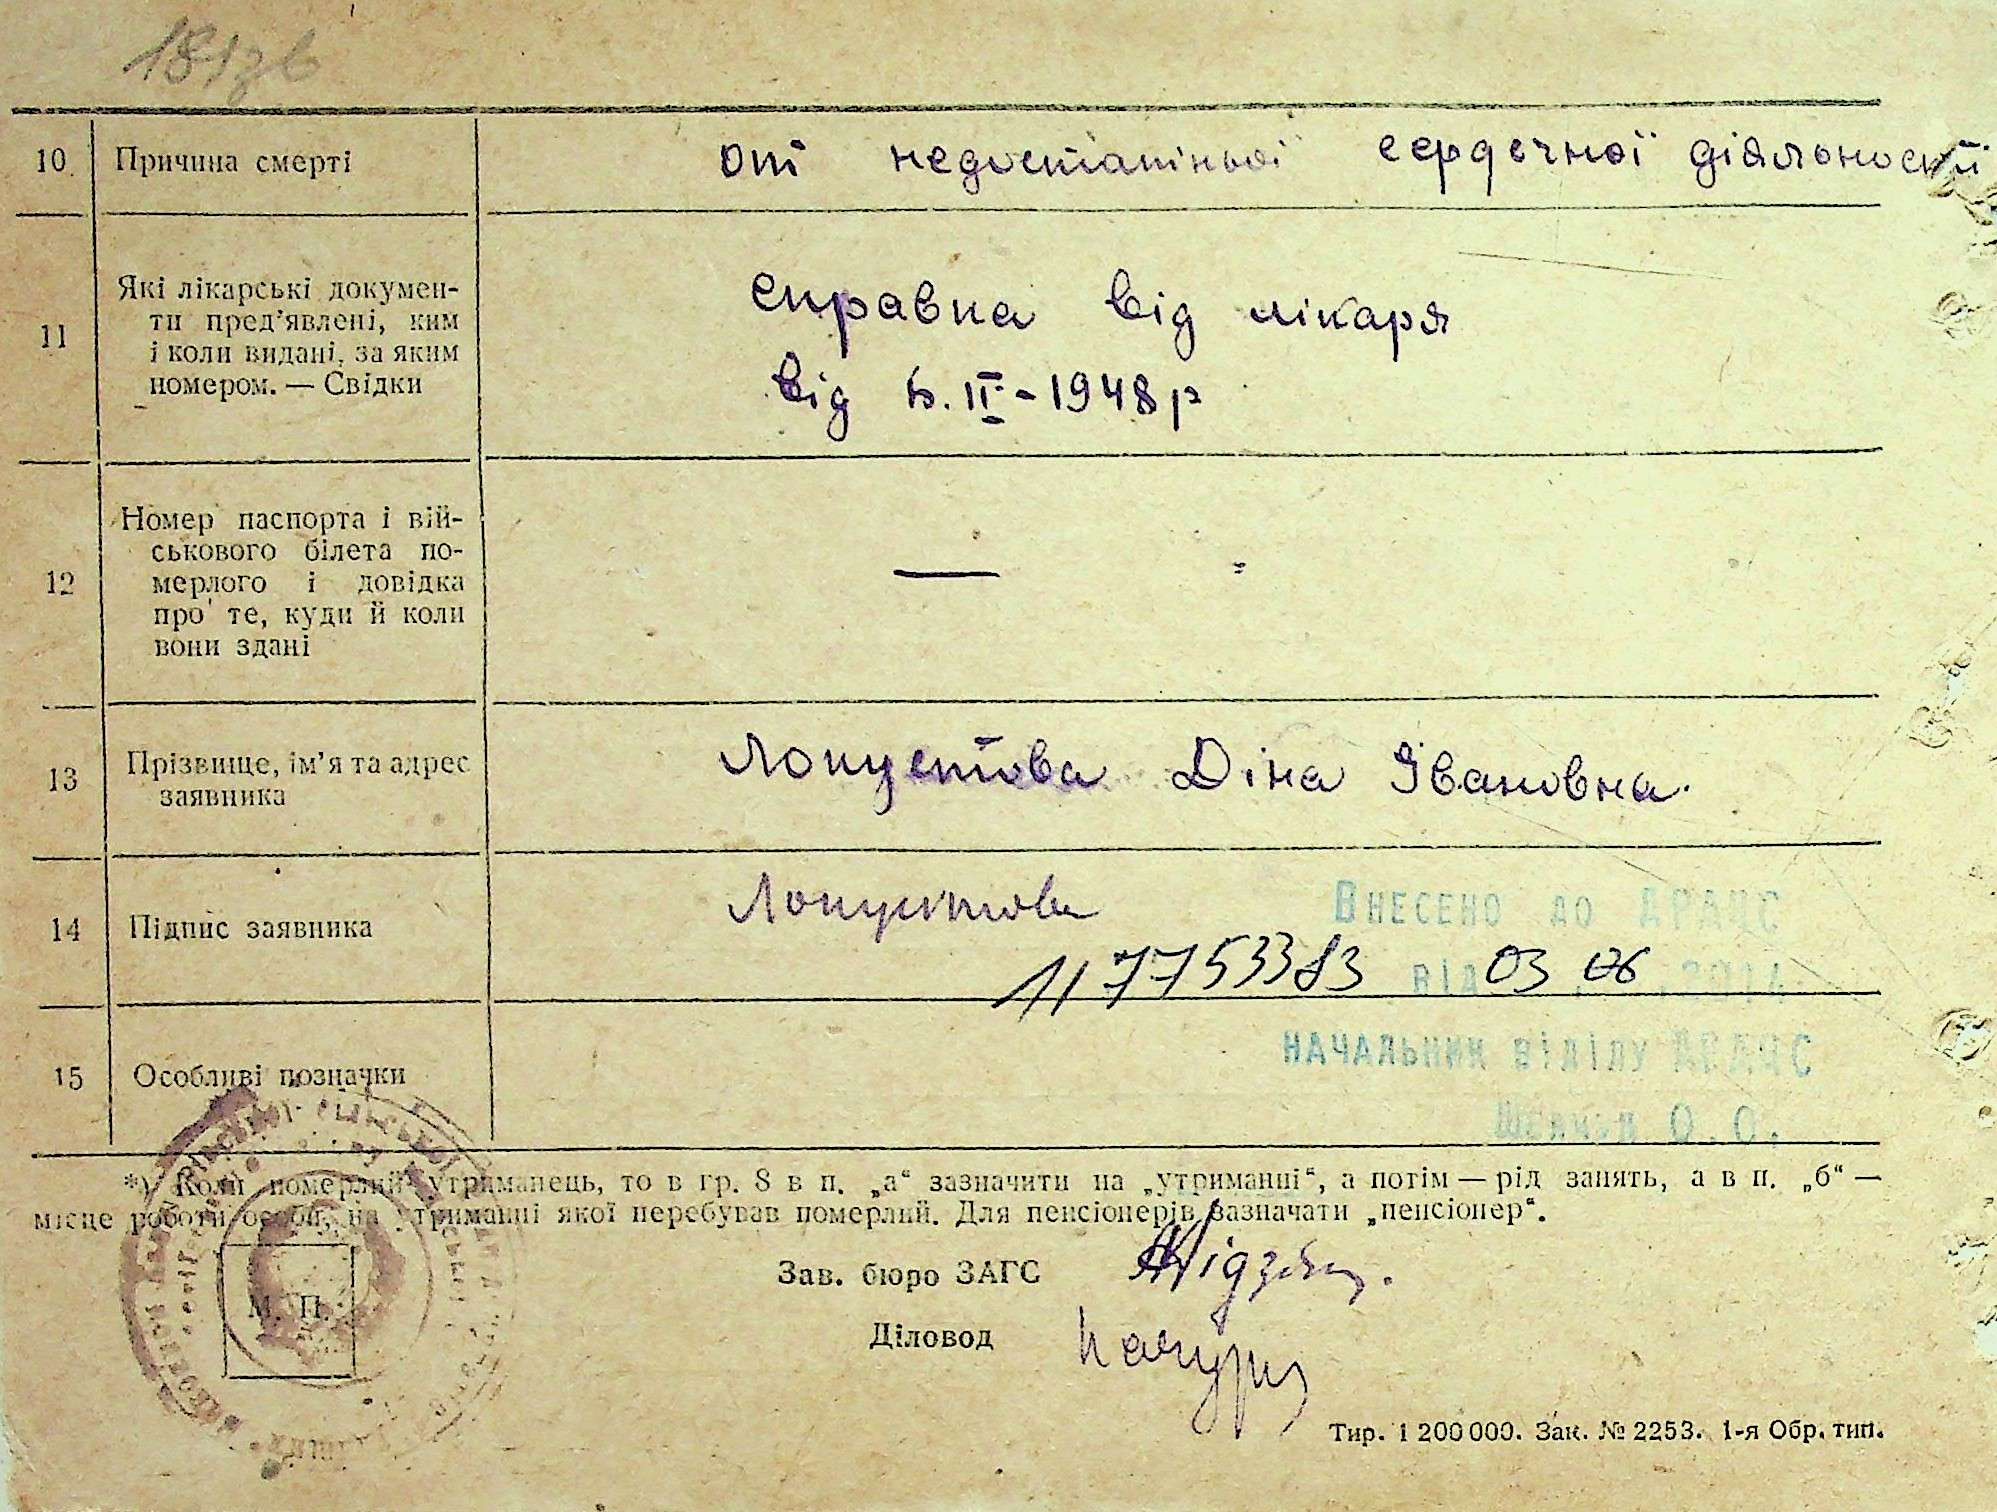 181зв
10. Причина смерті
от недостатньої сердечної діяльності
11
Які лікарські докумен-
ти пред'явлені, ким
і коли видані, за яким
номером. — Свідки
справка від лікаря
від 6.II-1948р
12
Номер паспорта і вій-
ськового білета по-
мерлого і довідка
про те, куди й коли
вони здані
—
13
Прізвище, ім'я та адрес
заявника
Лопустова Діна Івановна.
14 Підпис заявника
Лопустова
Внесено до ДРАЦС
1177753383 від 03 06 2014
начальник відділу ДРАЦС
О.О.
15 Особливі позначки
*) Коли померлий утриманець, то в гр. 8 в п. „а“ зазначити на „утриманні“, а потім — рід занять, а в п. „б“ —
місце роботи особи, на утриманні якої перебував померлий. Для пенсіонерів зазначати „пенсіонер“.
М. П.
Зав. бюро ЗАГС
Діловод
Тир. 1 200 000. Зак. № 2253. 1-я Обр. тип.